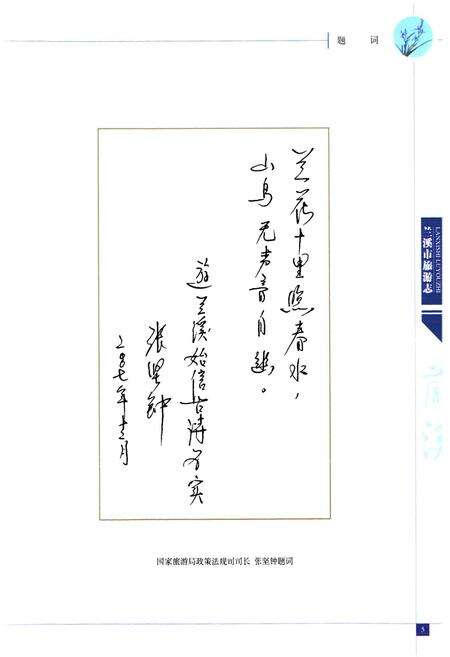 题 词
兰花十里照春水，
山鸟无声香自幽。
游兰溪始信古诗为实
张坚钟
二〇〇七年十二月
国家旅游局政策法规司司长 张坚钟题词
LANXISHI LUYOUZHI
兰溪市旅游志
5